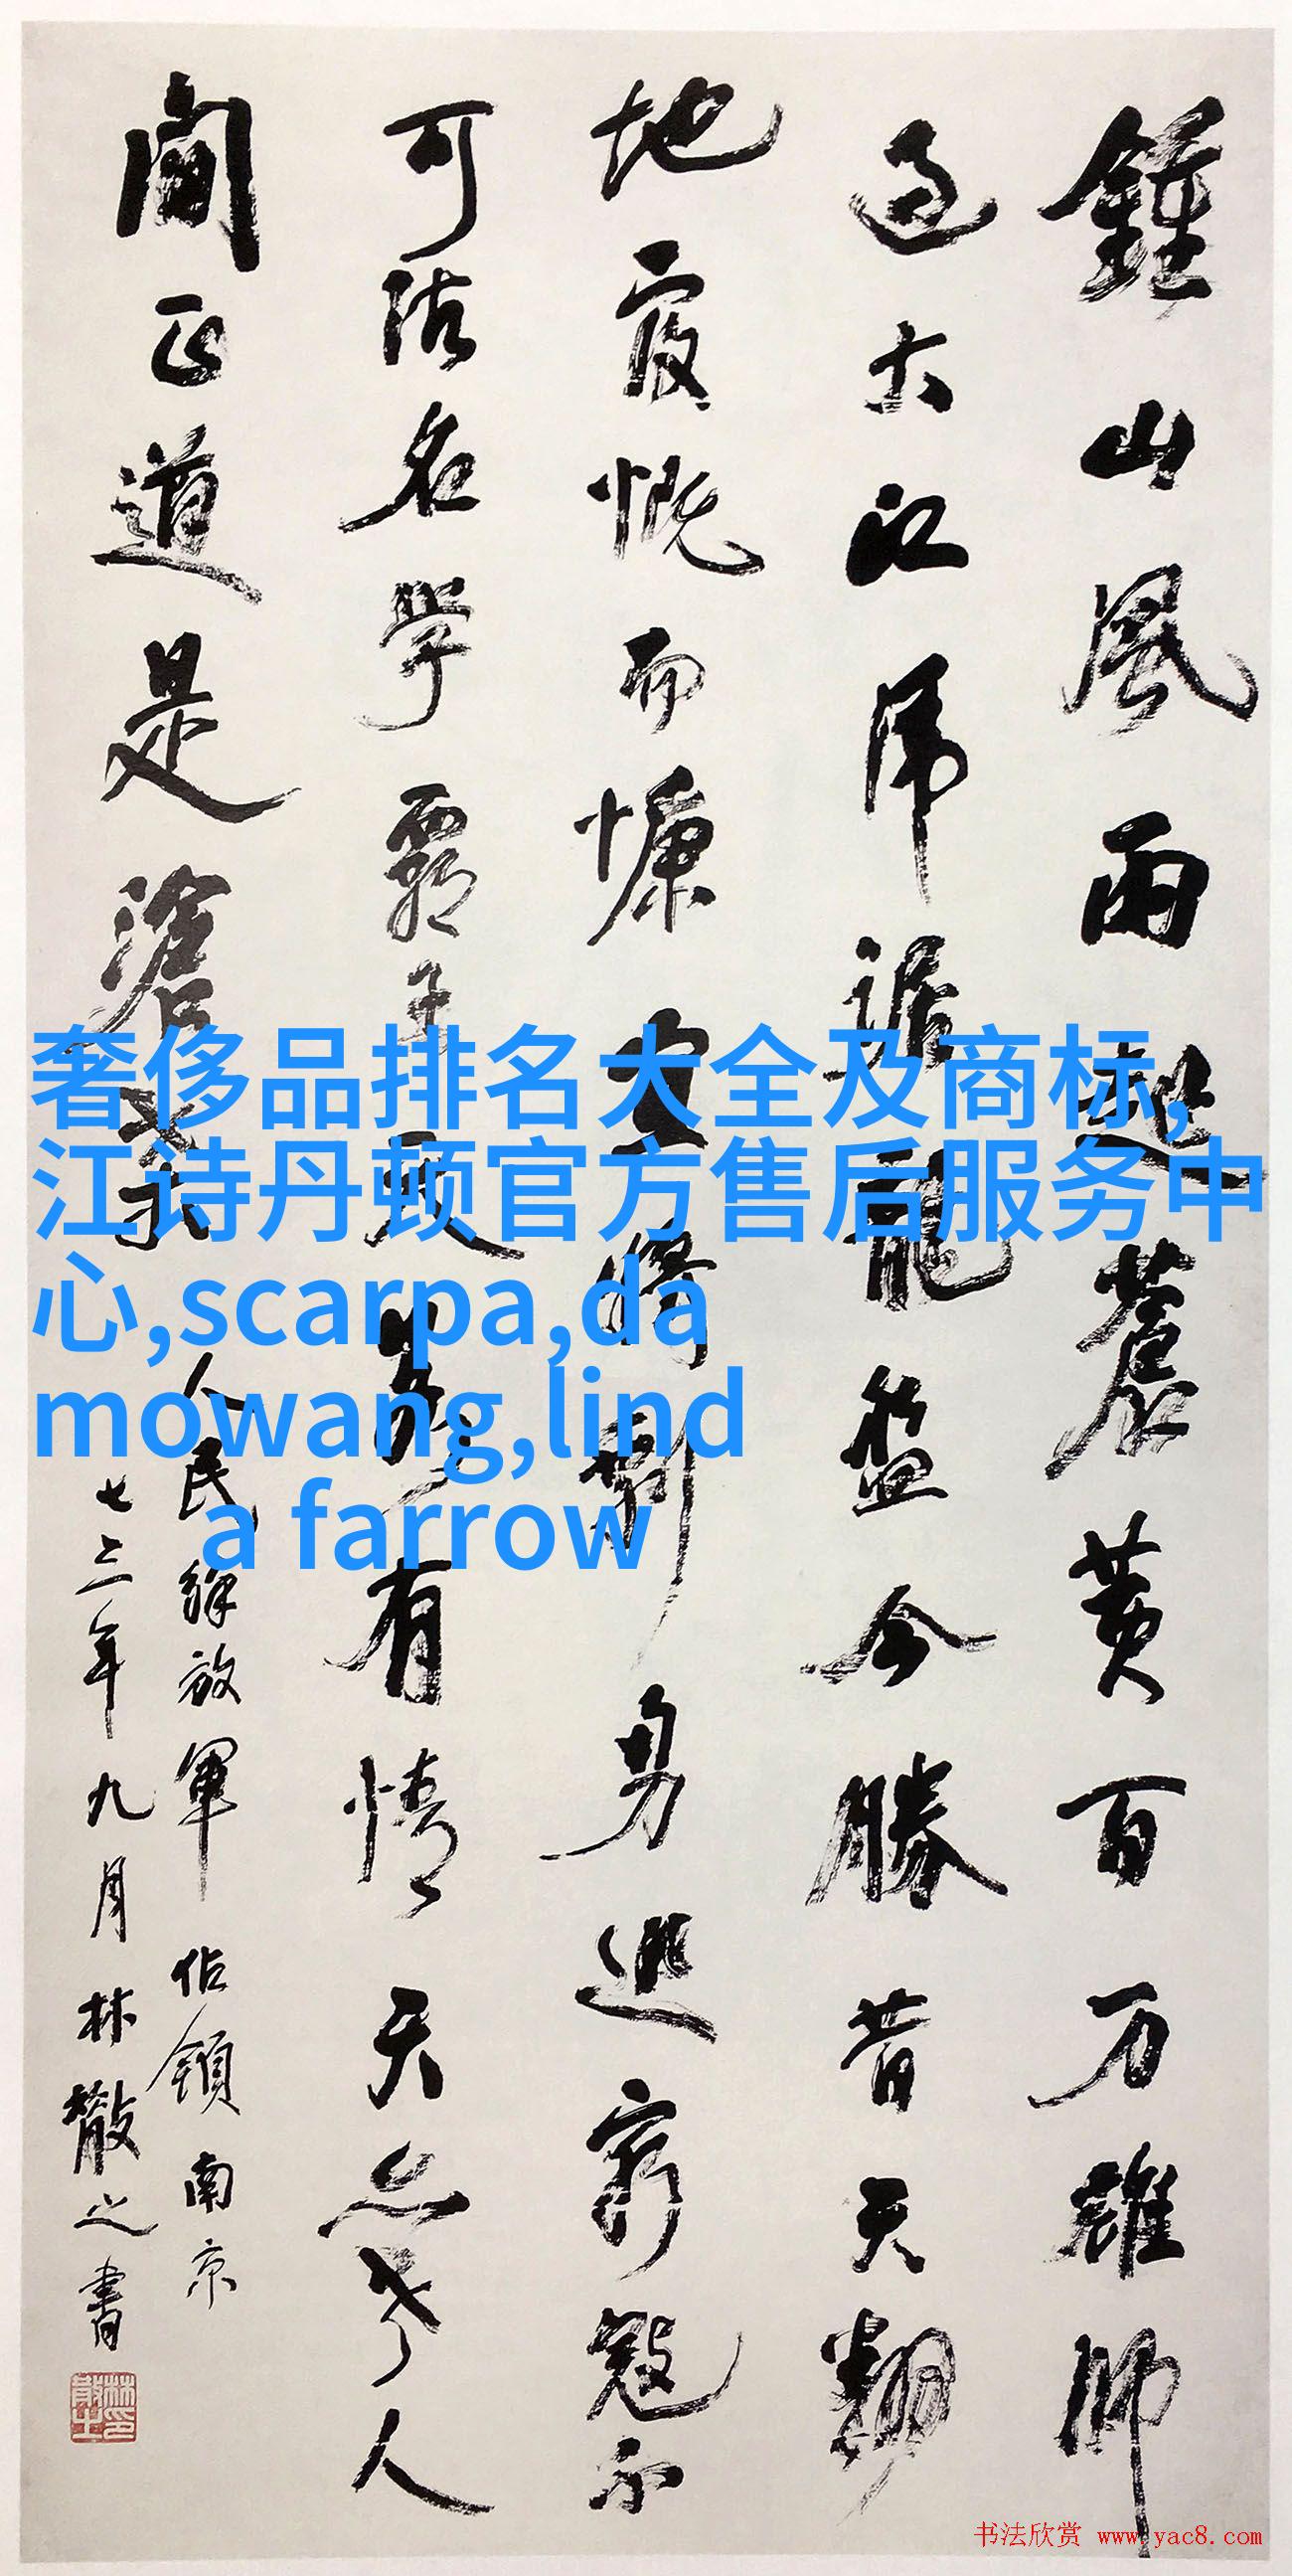 鍾山風雨起蒼黄百万雄師
過大江虎踞龍盘今勝昔天翻
地覆慨而慷宜将剩勇追窮寇不
可沽名學霸王天若有情天亦老人
間正道是滄桑
人民解放軍佔領南京
七三年九月林散之書
林散之印
奢侈品排名大全及商标,
江诗丹顿官方售后服务中
心,scarpa,da
mowang,lind
a farrow
书法欣赏 www.yac8.com